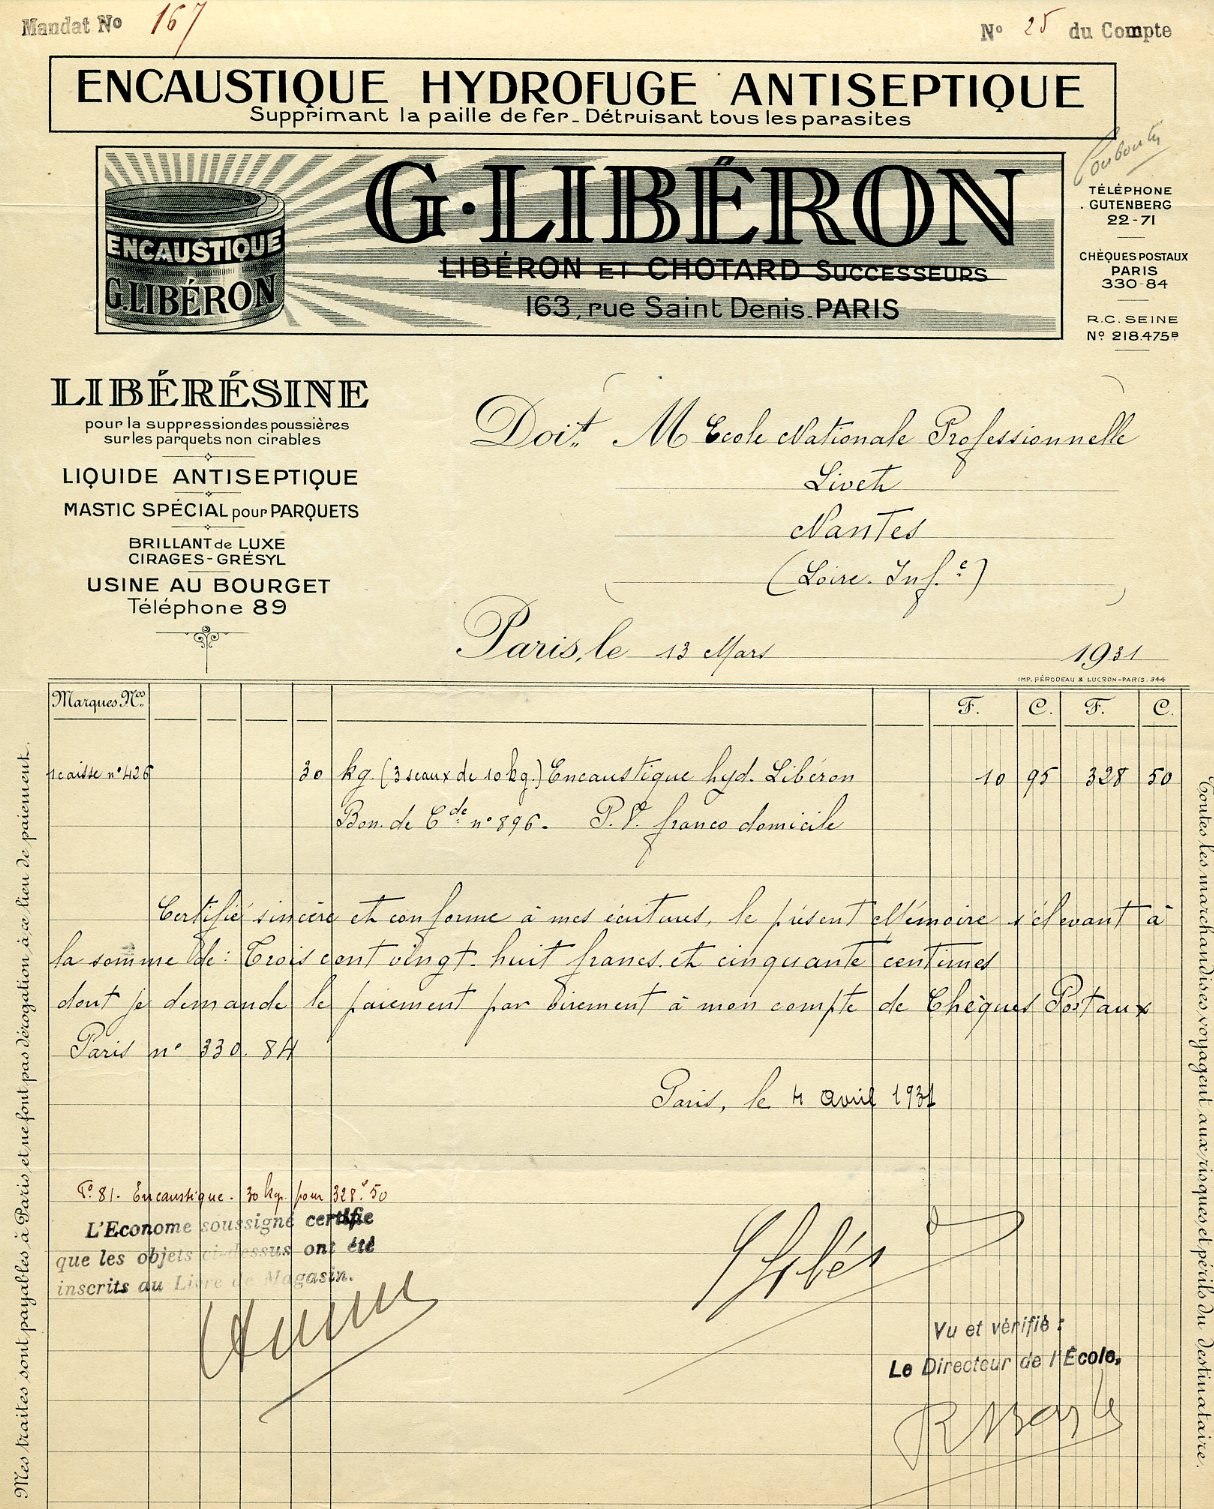 Mandat No 167
No 25 du Compte
ENCAUSTIQUE HYDROFUGE ANTISEPTIQUE
Supprimant la paille de fer - Détruisant tous les parasites
ENCAUSTIQUE
G. LIBÉRON
G. LIBÉRON
LIBÉRON ET CHOTARD SUCCESSEURS
163, rue Saint Denis. PARIS
TÉLÉPHONE
GUTENBERG
22-71
CHÈQUES POSTAUX
PARIS
330-84
R.C. SEINE
No 218.475B
LIBÉRÉSINE
pour la suppression des poussières
sur les parquets non cirables
LIQUIDE ANTISEPTIQUE
MASTIC SPÉCIAL pour PARQUETS
BRILLANT de LUXE
CIRAGES - GRÉSYL
USINE AU BOURGET
Téléphone 89
Doit M Ecole Nationale Professionnelle
Livet
Nantes
(Loire-Inf.e)
Paris, le 13 Mars 1931
IMP. PÉRODEAU & LUCRON-PARIS. 344
Marques Nos F. C. F. C.
1 caisse n° 426 30 kg (3 seaux de 10 kg.) Encaustique hyd. Libéron 10 95 328 50
Bon de Cde n° 896. P.V. franco domicile
Certifié sincère et conforme à mes écritures, le présent Mémoire s'élevant à
la somme de : Trois cent vingt-huit francs et cinquante centimes
dont je demande le paiement par virement à mon compte de Chèques Postaux
Paris n° 330.84
Paris, le 4 avril 1931
F° 81. Encaustique. 30 kg. pour 328f 50
L'Econome soussigné certifie
que les objets ci-dessus ont été
inscrits au Livre de Magasin.
Vu et vérifié :
Le Directeur de l'École,
Mes traites sont payables à Paris, et ne font pas dérogation, à ce lieu de paiement.
Toutes les marchandises voyagent aux risques et périls du destinataire.